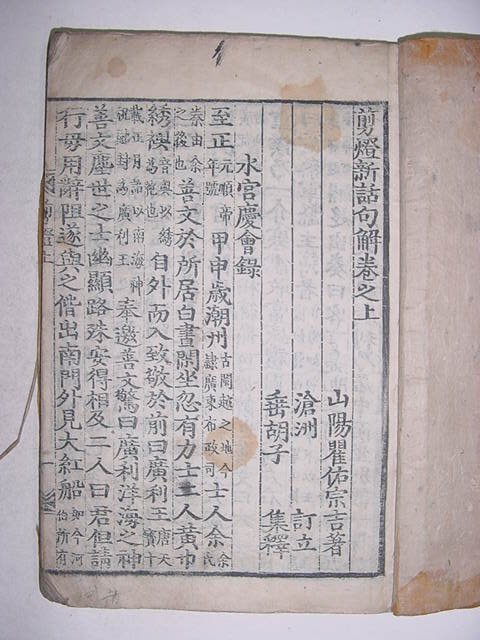 剪燈新話句解卷之上
山陽瞿佑宗吉著
滄洲 訂正
垂胡子 集釋
水宮慶會錄
至正元順帝年號甲申歲潮州古閩越之地今隸廣東布政司士人余余氏
秦由余之後也善文於所居白晝閑坐忽有力士二人黃巾
綉襖音奧以綉爲袍也自外而入致敬於前曰廣利王唐天寶十
載正月詔以南海神祝融封爲廣利王奉邀善文驚曰廣利洋海之神
善文塵世之士幽顯路殊安得相及二人曰君但請
行毋用辭阻遂與之偕出南門外見大紅船如今河泊所有